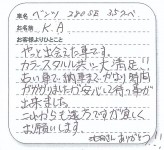 車名 ベンツ 220SE 3.5クーペ
お名前 K.A
お客様よりひとこと
やっと出会えた車です。
カラー、スタイル共に大満足!!
古い車で、納車までかなり時間
がかかりましたが安心して待つ事が
出来ました。
これからも遠方ですが宜しく
お願いします。
さんありがとう!!